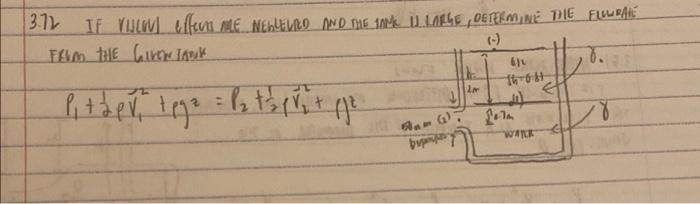 3.72 IF VISCOUS effects ARE NEGLECTED AND THE TANK IS LARGE, DETERMINE THE FLOWRATE
FROM THE GIVEN TANK
P₁ + ½ρV̄₁² + ρgz = P₂ + ½ρV̄₂² + ρgz
(-)
OIL
SG=0.81
h=
2m
γ₀
(1)
50mm (2)
0.7m
WATER
γ